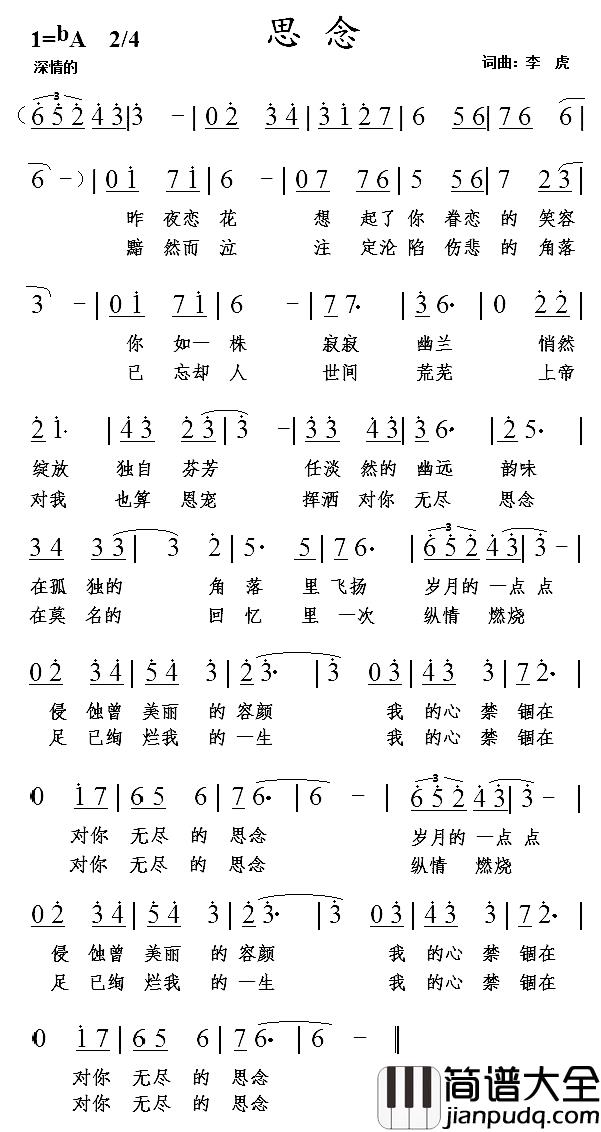 思念
1=bA 2/4
深情的
词曲：李 虎
3
（652 43|3 －|02 34|31 27|6 56|76 6|
6 －）|01 71|6 －|07 76|5 56|7 23|
昨 夜恋 花 想 起了 你 眷恋 的 笑容
黯 然而 泣 注 定沦 陷 伤悲 的 角落
3 －|01 71|6 －|77·|36·|0 22|
你 如一 株 寂寂 幽兰 悄然
已 忘却 人 世间 荒芜 上帝
21·|43 23|3 －|33 43|36·|25·|
绽放 独自 芬芳 任淡 然的 幽远 韵味
对我 也算 恩宠 挥洒 对你 无尽 思念
3
34 33|3 2|5· 5|76·|652 43|3 －|
在孤 独的 角 落 里 飞扬 岁月的 一点 点
在莫 名的 回 忆 里 一次 纵情 燃烧
02 34|54 3|23· 3|03 43|72·|
侵 蚀曾 美丽 的 容颜 我 的心 禁 锢在
足 已绚 烂我 的 一生 我 的心 禁 锢在
3
0 17|65 6|76·|6 －|652 43|3 －|
对你 无尽 的 思念 岁月的 一点 点
对你 无尽 的 思念 纵情 燃烧
02 34|54 3|23· 3|03 43|72·|
侵 蚀曾 美丽 的 容颜 我 的心 禁 锢在
足 已绚 烂我 的 一生 我 的心 禁 锢在
0 17|65 6|76·|6 －‖
对你 无尽 的 思念
对你 无尽 的 思念
简谱大全
jianpudq.com